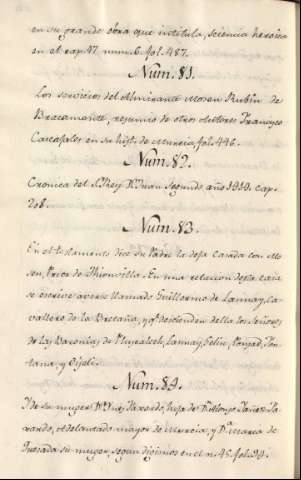 en su grande obra que intitula, sciencia heroica
en el cap. 17 num. 6. fol. 487.
Num. 81.
Los servicios del Almirante Mosen Rubin de
Bracamonte, resumio de otros Autores Francisco
Cascales en su hist. de Murcia, fol. 446.
Num. 82.
Cronica del S. Rey Dn. Juan Segundo año 1414. cap.
208.
Num. 83.
En el testamento dice su Padre la deja casada con Mo
sen, Prior de Thionvilla. En una relacion desta casa
se escrive averse llamado Guillermo de Lannay, Ca-
vallero de la Bretaña, y q. descienden della los Señores
de las Baronias de Lannay,
tana, y
Num. 84.
Y de su muger Da. Ynes Faxardo, hija de Dn. Alonso Yañez Fa-
xardo, Adelantado mayor de Murcia, y Da. Maria de
Quesada su muger, segun digimos en el n. 45. fol. 24.